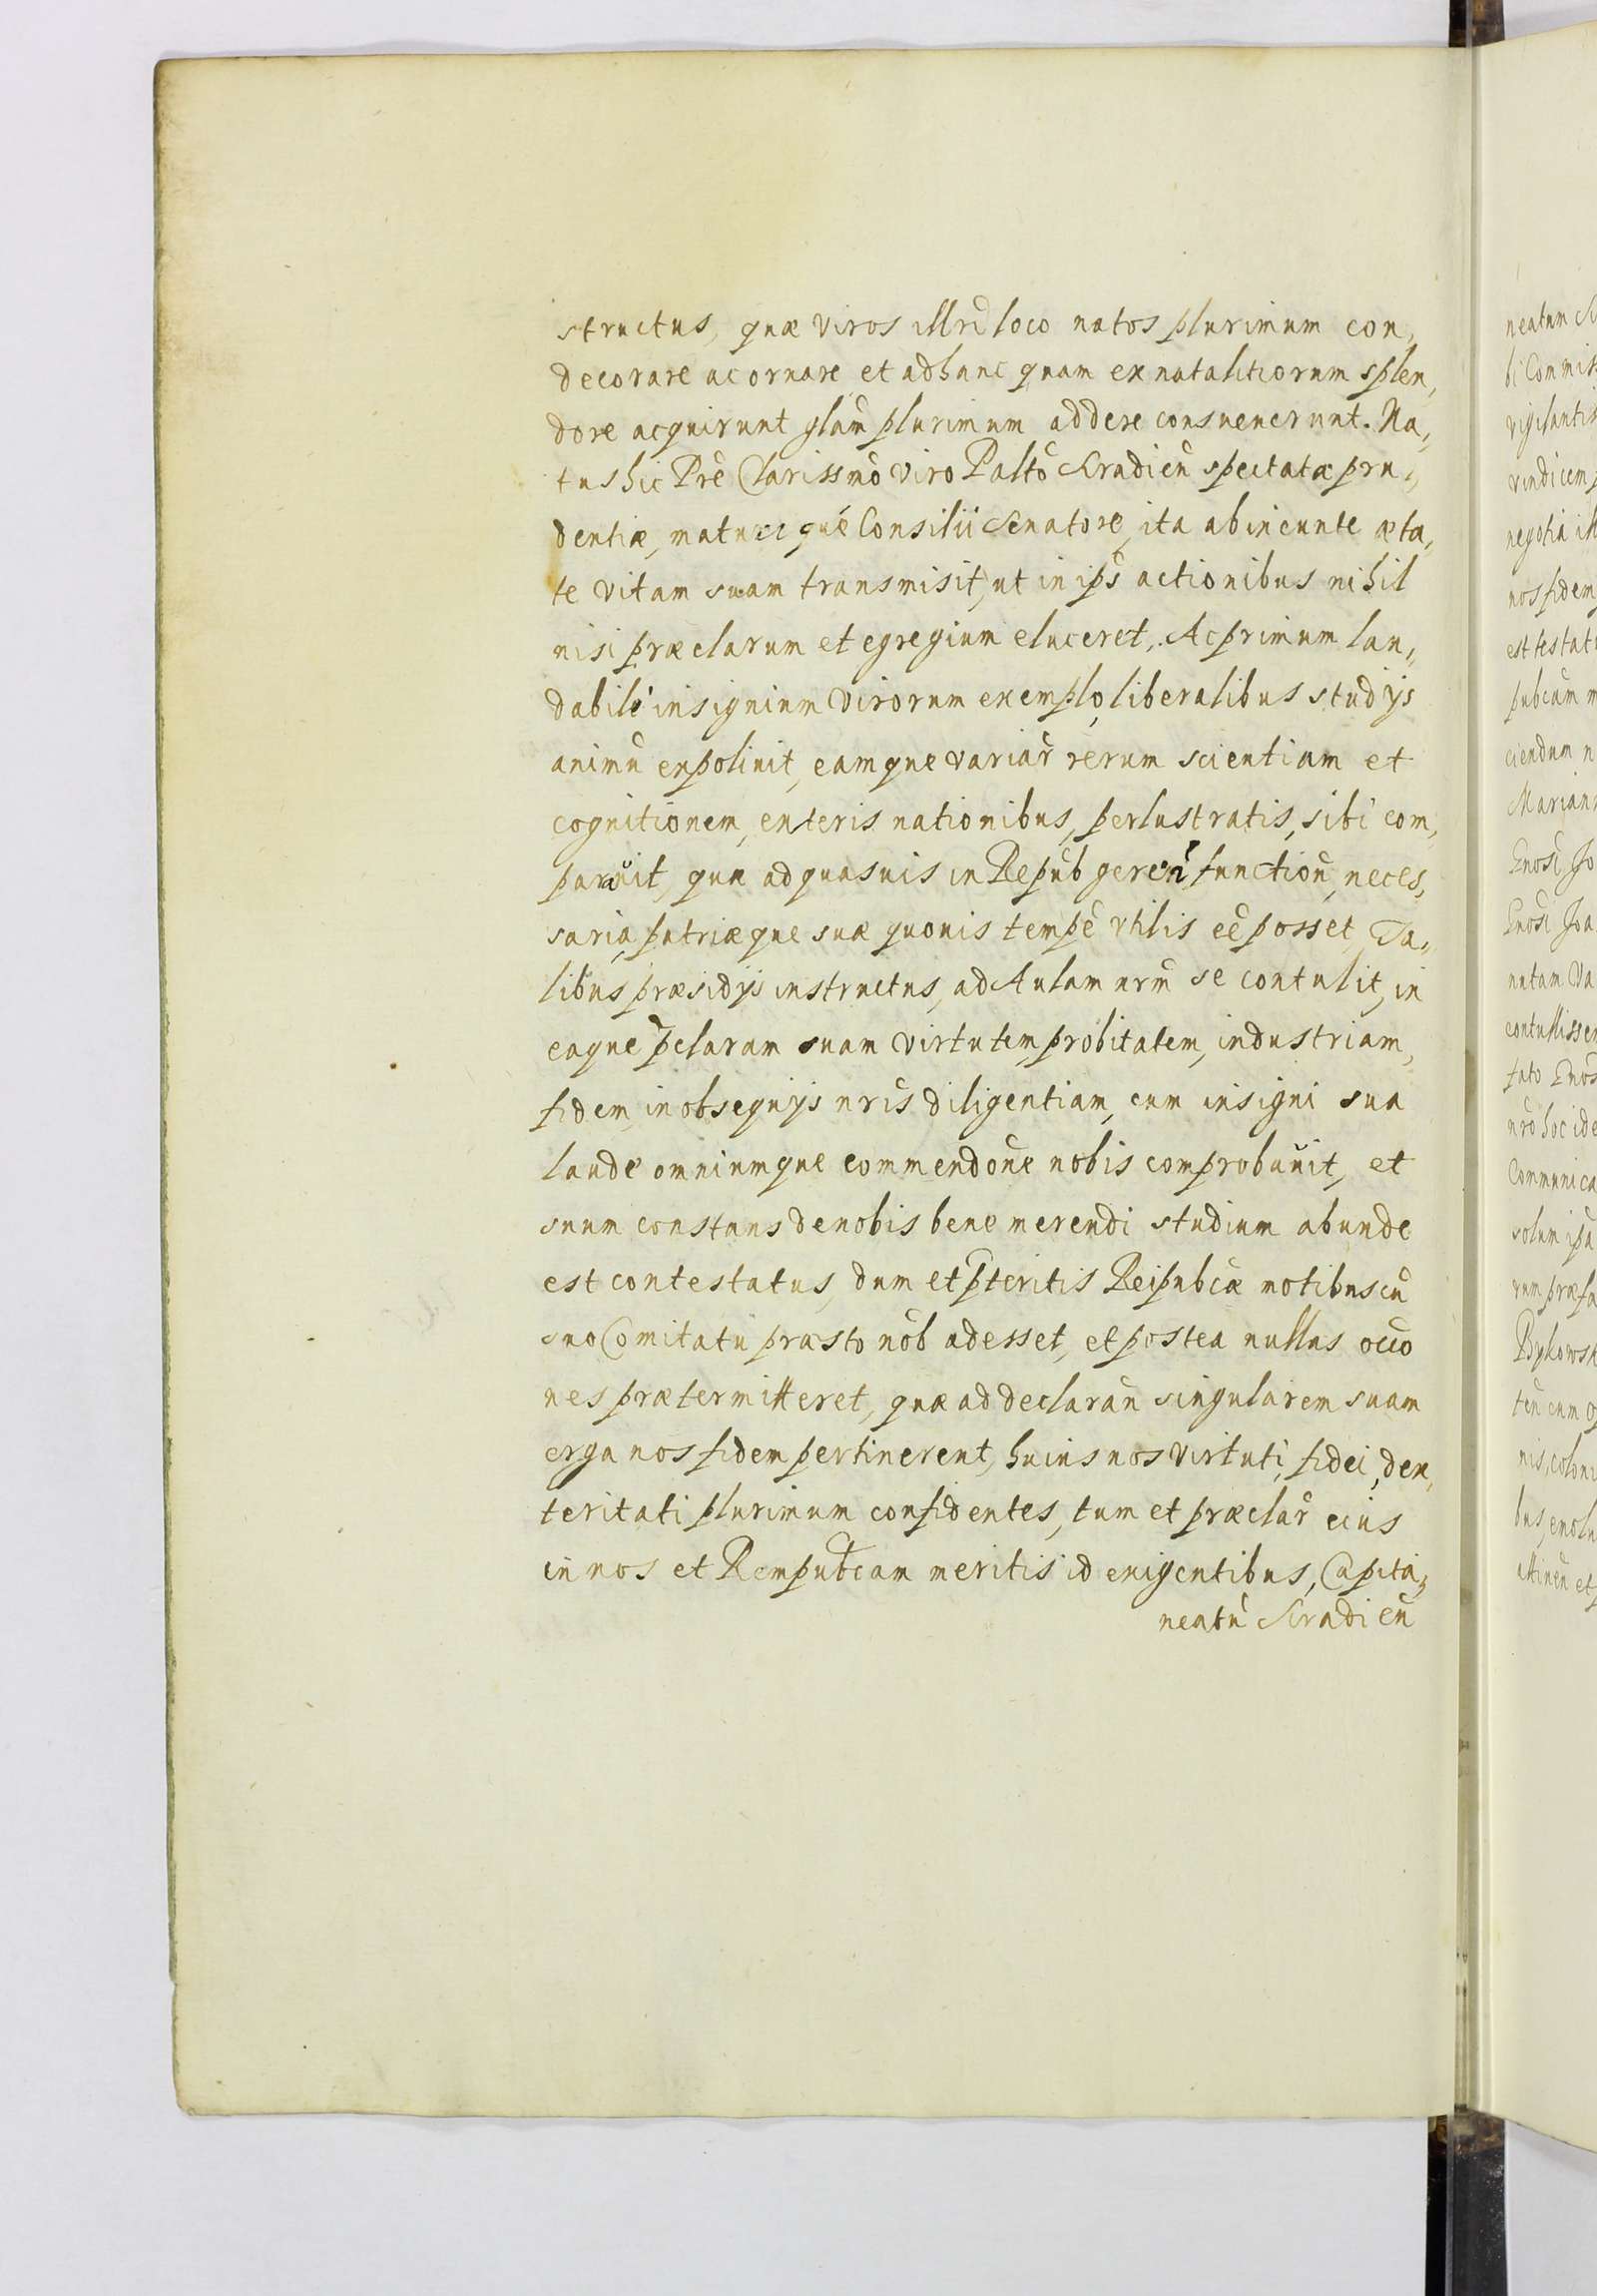 structus, quæ viros illri loco natos plurimum con,
decorare ac ornare et ad hanc quam ex natalitiorum splen,
dore acquirunt glam̃ plurimum addere consueuerunt. Na,
tus hic Prẽ Clarissmõ viro Paltõ Siradieñ spectatæ pru,
dentiæ, maturi qué Consilii Senatore, ita ab ineunte æta,
te vitam suam transmisit, ut in ips̃ actionibus nihil
nisi præclarum et egregium eluceret. Ac primum lau,
dabili insignium virorum exemplo, liberalibus studijs
animũ expoliuit, eamque variar̃ rerum scientiam et
cognitionem, exteris nationibus, perlustratis, sibi com,
parauit, quæ ad quasuis in Repub̃ gereñ functioñ, neces,
saria, patriæque suæ quouis tempẽ vtilis eẽ posset, Ta,
libus præsidijs instructus, ad Aulam nrm̃ se contulit, in
eaque p̃claram suam virtutem, probitatem, industriam,
fidem, in obsequijs nris̃ diligentiam, cum insigni sua
laude omniumque commendoñe nobis comprobauit, et
suum constans de nobis bene merendi studium abunde
est contestatus, dum et p̃teritis Reipubcæ motibus cũ
suo Comitatu præsto nob̃ adesset, et postea nullas occõ
nes prætermitteret, quæ ad declarañ singularem suam
erga nos fidem pertinerent, huius nos virtuti, fidei, dex,
teritati plurimum confidentes, tum et præclar̃ eius
in nos et Rempubcam meritis id exigentibus, Capita,
neatũ Siradieñ
neatum Si
bi Commis
vigilantis
vindicem p
negotia ill
nos fidem
est testat
pubcam m
ciendum n
Mariann
Gnosi Jo
Gnosi Joa
nutam Va
contulisse
fato Gnos
nrõ hoc ide
Communica
solum ipã
rum præfa
Bykowsk
teñ cum
nis, coloni
bus,
attineñ et